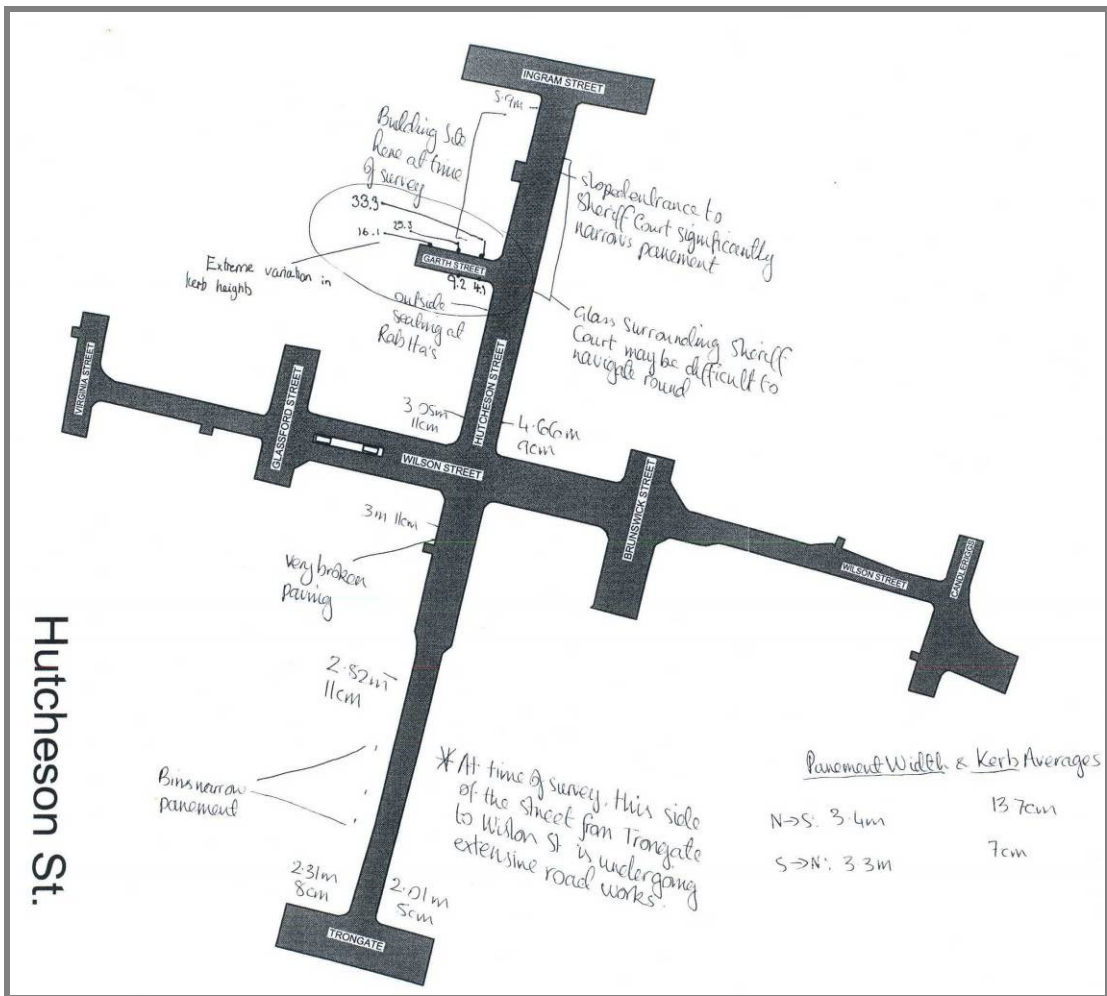 INGRAM STREET
5.9m
Building Site
here at time
of survey
33.9
29.3
16.1
GARTH STREET
9.2 4.1
Extreme variation in
kerb heights
outside
seating at
Rab Ha's
sloped entrance to
Sheriff Court significantly
narrows pavement
Glass surrounding Sheriff
Court may be difficult to
navigate round
VIRGINIA STREET
GLASSFORD STREET
HUTCHESON STREET
3.05m
11cm
4.66m
9cm
WILSON STREET
BRUNSWICK STREET
WILSON STREET
CANDLERIGGS
3m 11cm
very broken
paving
2.82m
11cm
Bins narrow
pavement
* At time of survey, this side
of the street from Trongate
to Wislon St is undergoing
extensive road works.
Pavement Width & Kerb Averages
N→S: 3.4m 13.7cm
S→N: 3.3m 7cm
2.31m
8cm
2.01m
5cm
TRONGATE
Hutcheson St.